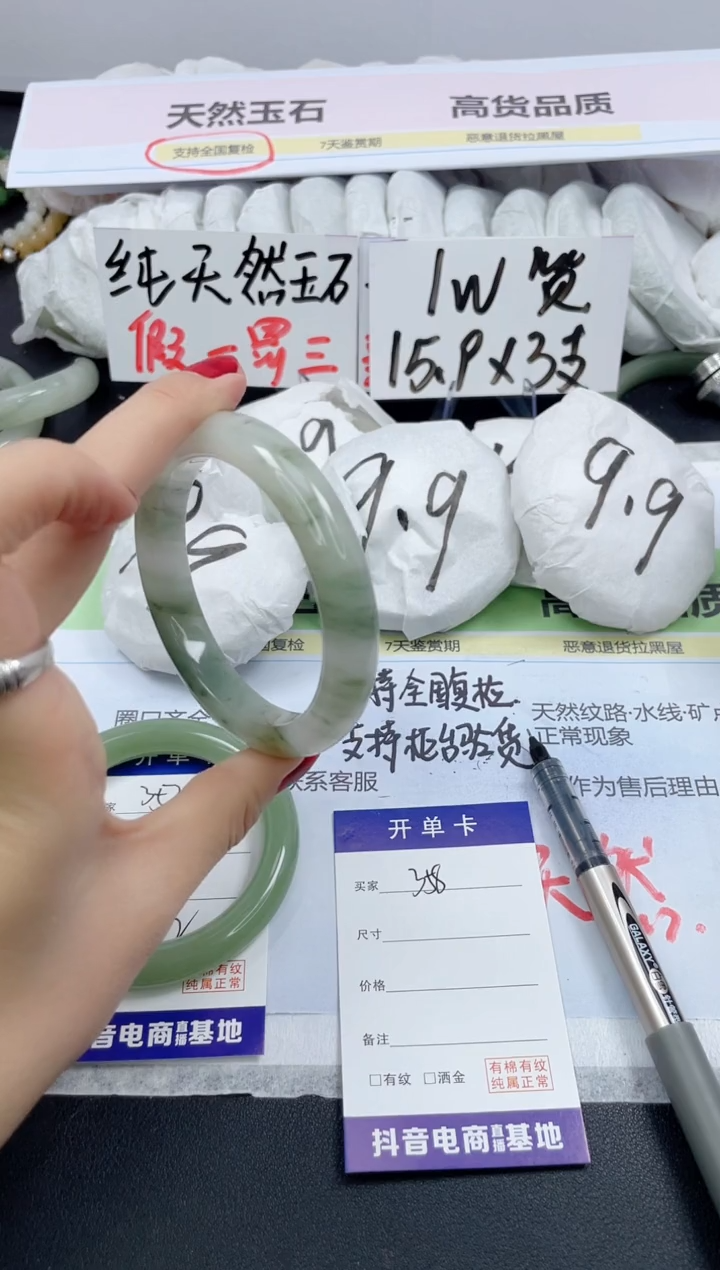 天然玉石 高货品质
支持全国复检 7天鉴赏期 恶意退货拉黑屋
纯天然玉石
假一罚三
1W赞
15.9×3支
9.9
9.9
国复检 7天鉴赏期 恶意退货拉黑屋
持全国复检
支持柜台验货
圈口齐全
天然纹路·水线·矿点
正常现象
联系客服
作为售后理由
天然
开单
家
棉有纹
纯属正常
音电商直播基地
开单卡
买家 358
尺寸
价格
备注
□有纹 □洒金
有棉有纹
纯属正常
抖音电商直播基地
GALAXY